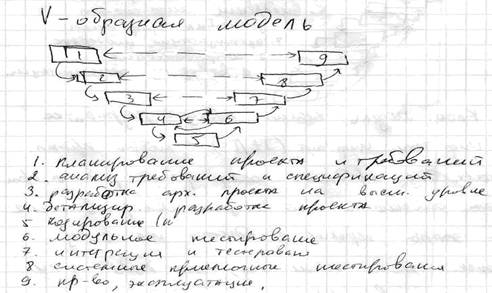 V-образная модель
1 9
2 8
3 7
4 6
5
1. планирование проекта и требований
2. анализ требований и спецификаций
3. разработка арх. проекта на выс. уровне
4. детализир разработка проекта
5 кодирование (и
6. модульное тестирование
7. интеграция и тестирован
8 системные приемочное тестирования
9. пр-во, эксплуатация,